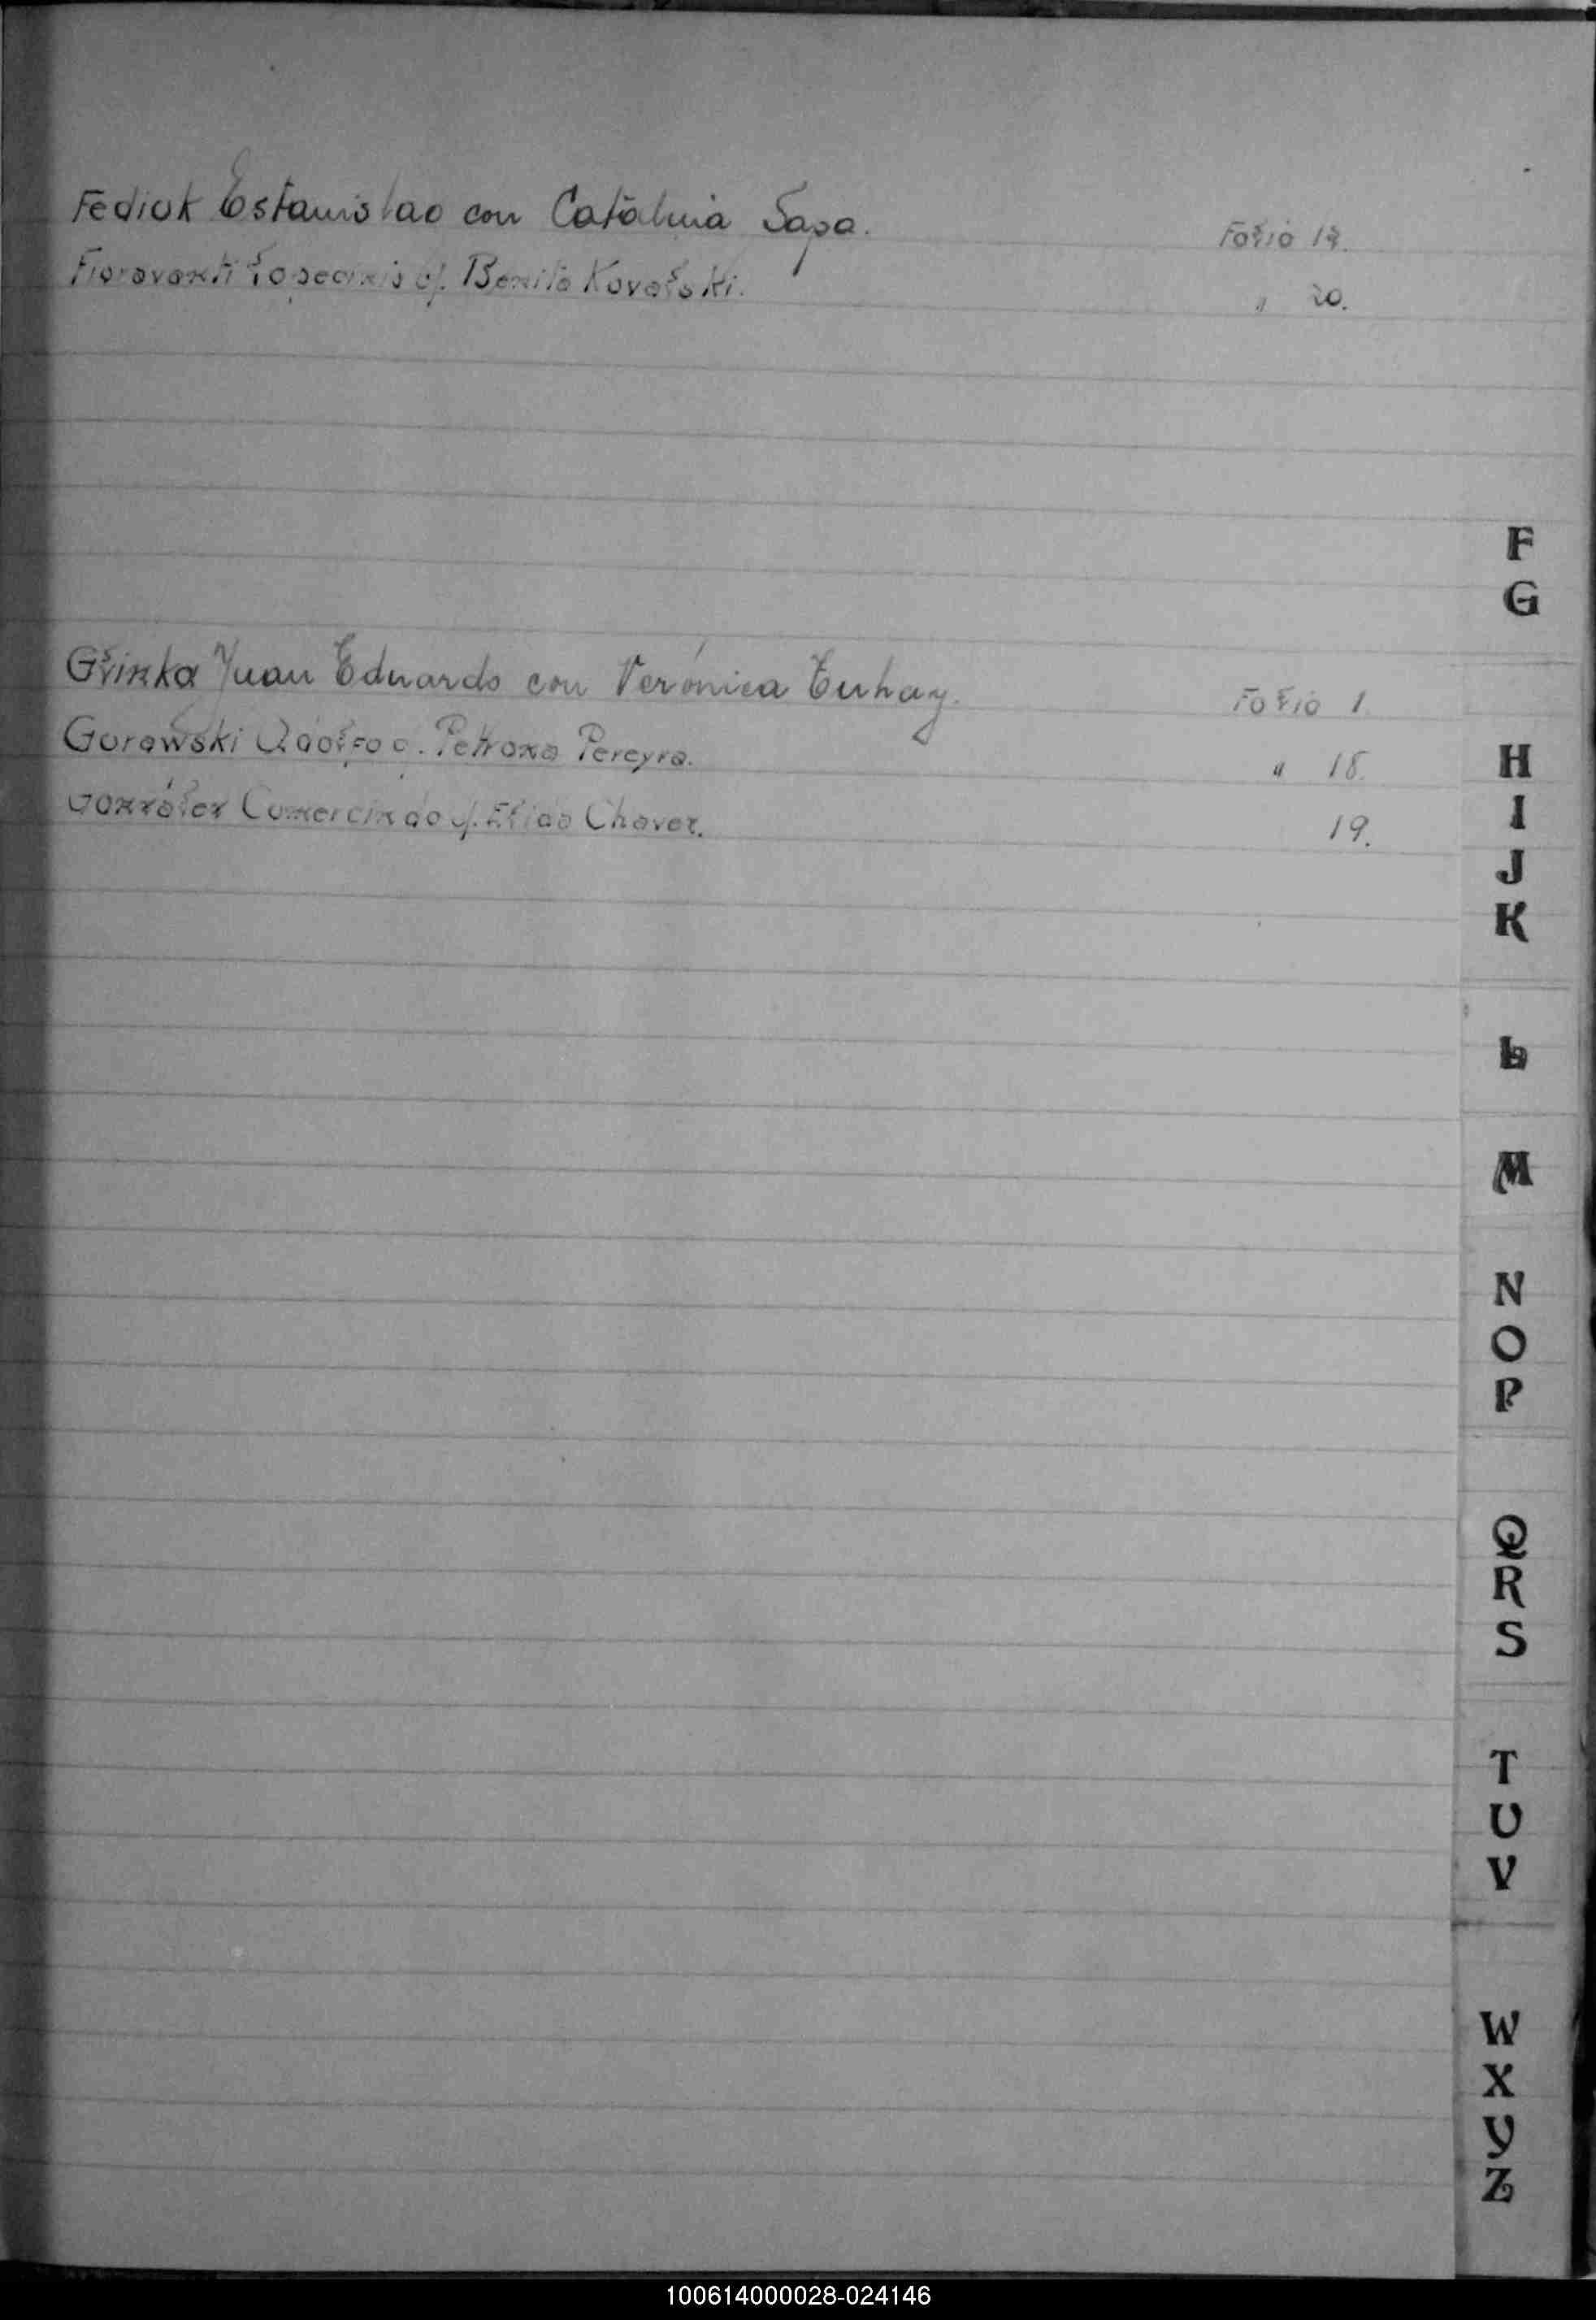 Fediuk Estanislao con Catalina Sapa. Folio 17.
Fioravanti c/. Benita Kovalski. " 20.
F
G
Glinka Juan Eduardo con Verónica Euhay. Folio 1
Gurawski Adolfo c. Petrona Pereyra. " 18.
González Comercindo c/. Elida Chavez. 19.
H
I
J
K
L
M
N
O
P
Q
R
S
T
U
V
W
X
Y
Z
100614000028-024146